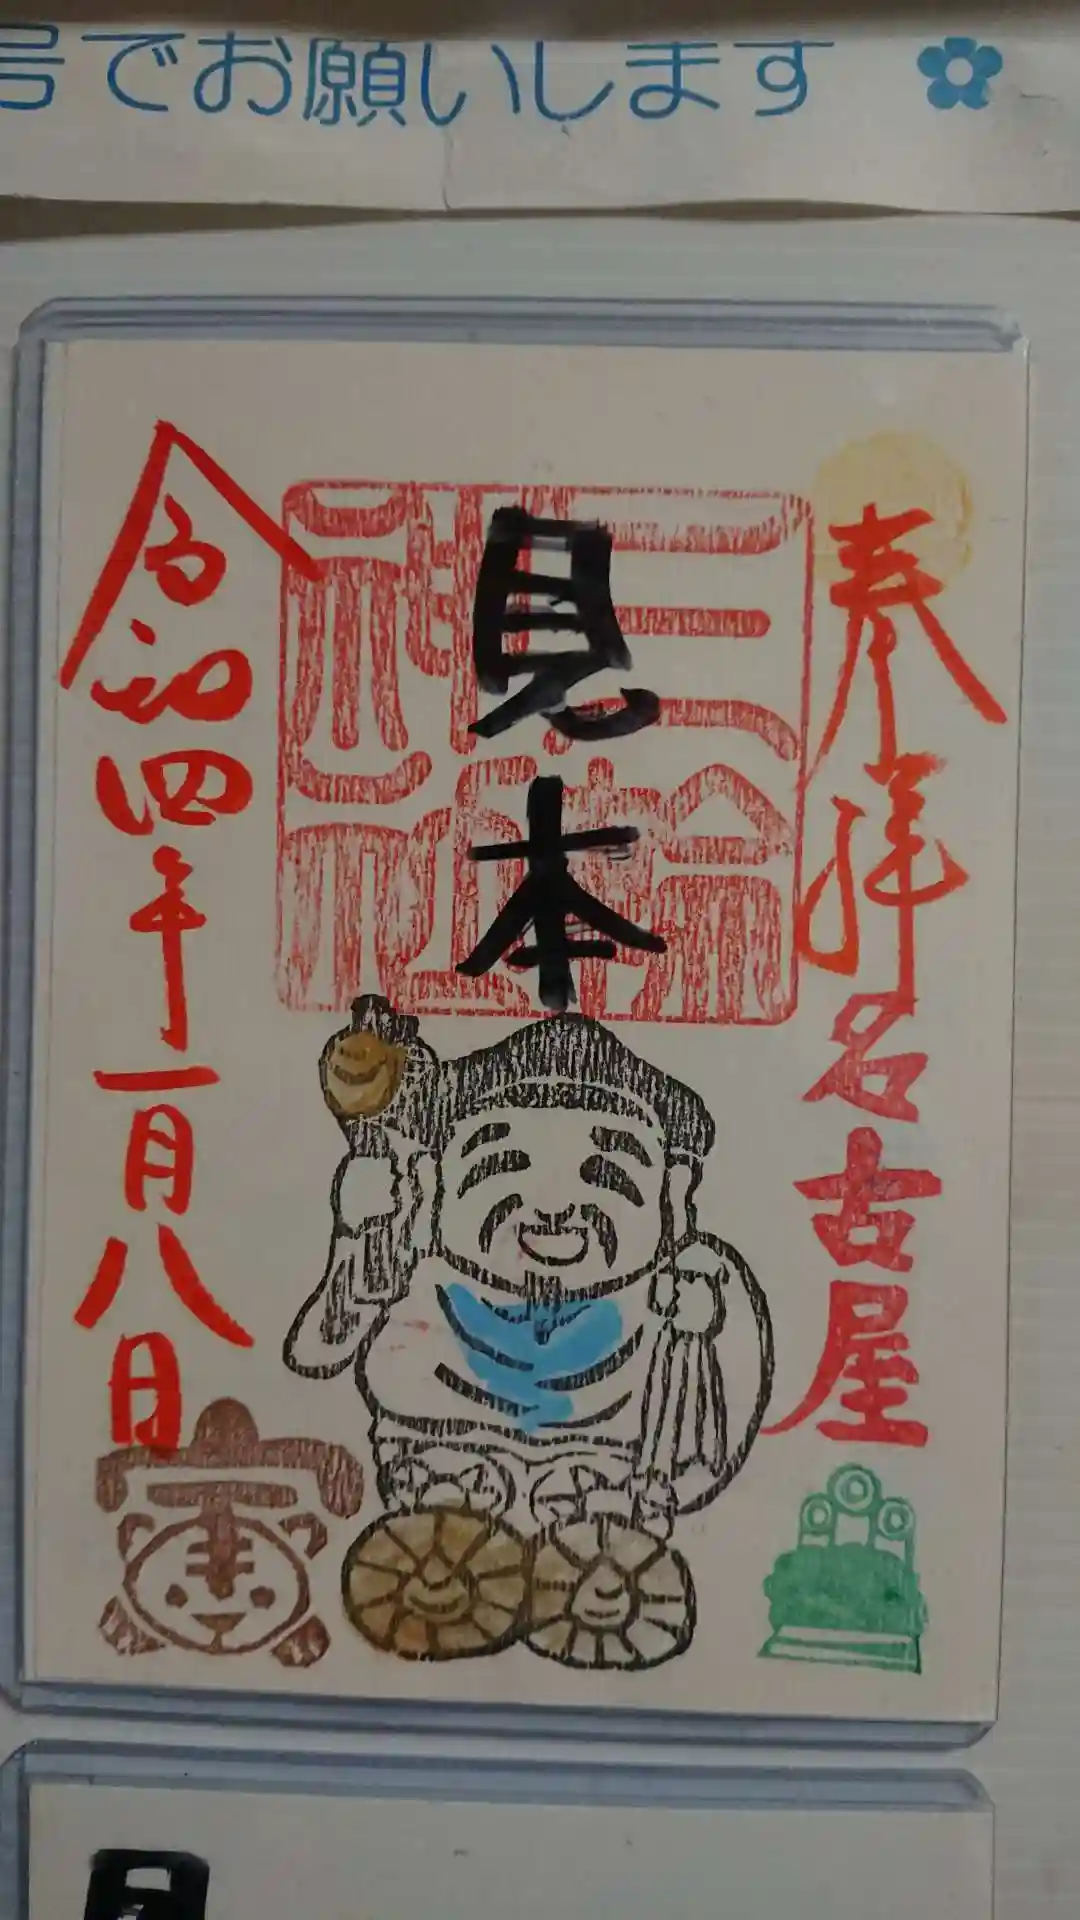 号でお願いします
奉拝
名古屋
三輪
神社
見本
令和四年一月八日